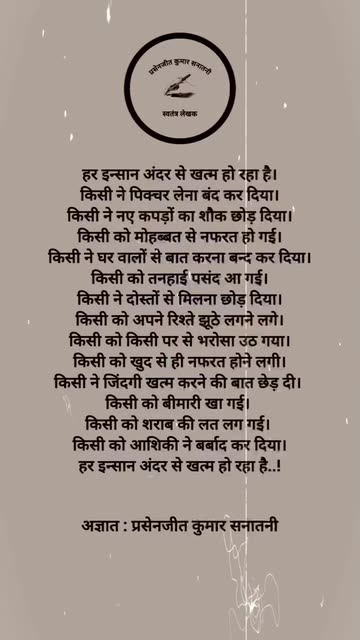 प्रसेनजीत कुमार सनातनी
स्वतंत्र लेखक
हर इन्सान अंदर से खत्म हो रहा है।
किसी ने पिक्चर लेना बंद कर दिया।
किसी ने नए कपड़ों का शौक छोड़ दिया।
किसी को मोहब्बत से नफरत हो गई।
किसी ने घर वालों से बात करना बन्द कर दिया।
किसी को तनहाई पसंद आ गई।
किसी ने दोस्तों से मिलना छोड़ दिया।
किसी को अपने रिश्ते झूठे लगने लगे।
किसी को किसी पर से भरोसा उठ गया।
किसी को खुद से ही नफरत होने लगी।
किसी ने जिंदगी खत्म करने की बात छेड़ दी।
किसी को बीमारी खा गई।
किसी को शराब की लत लग गई।
किसी को आशिकी ने बर्बाद कर दिया।
हर इन्सान अंदर से खत्म हो रहा है..!
अज्ञात : प्रसेनजीत कुमार सनातनी